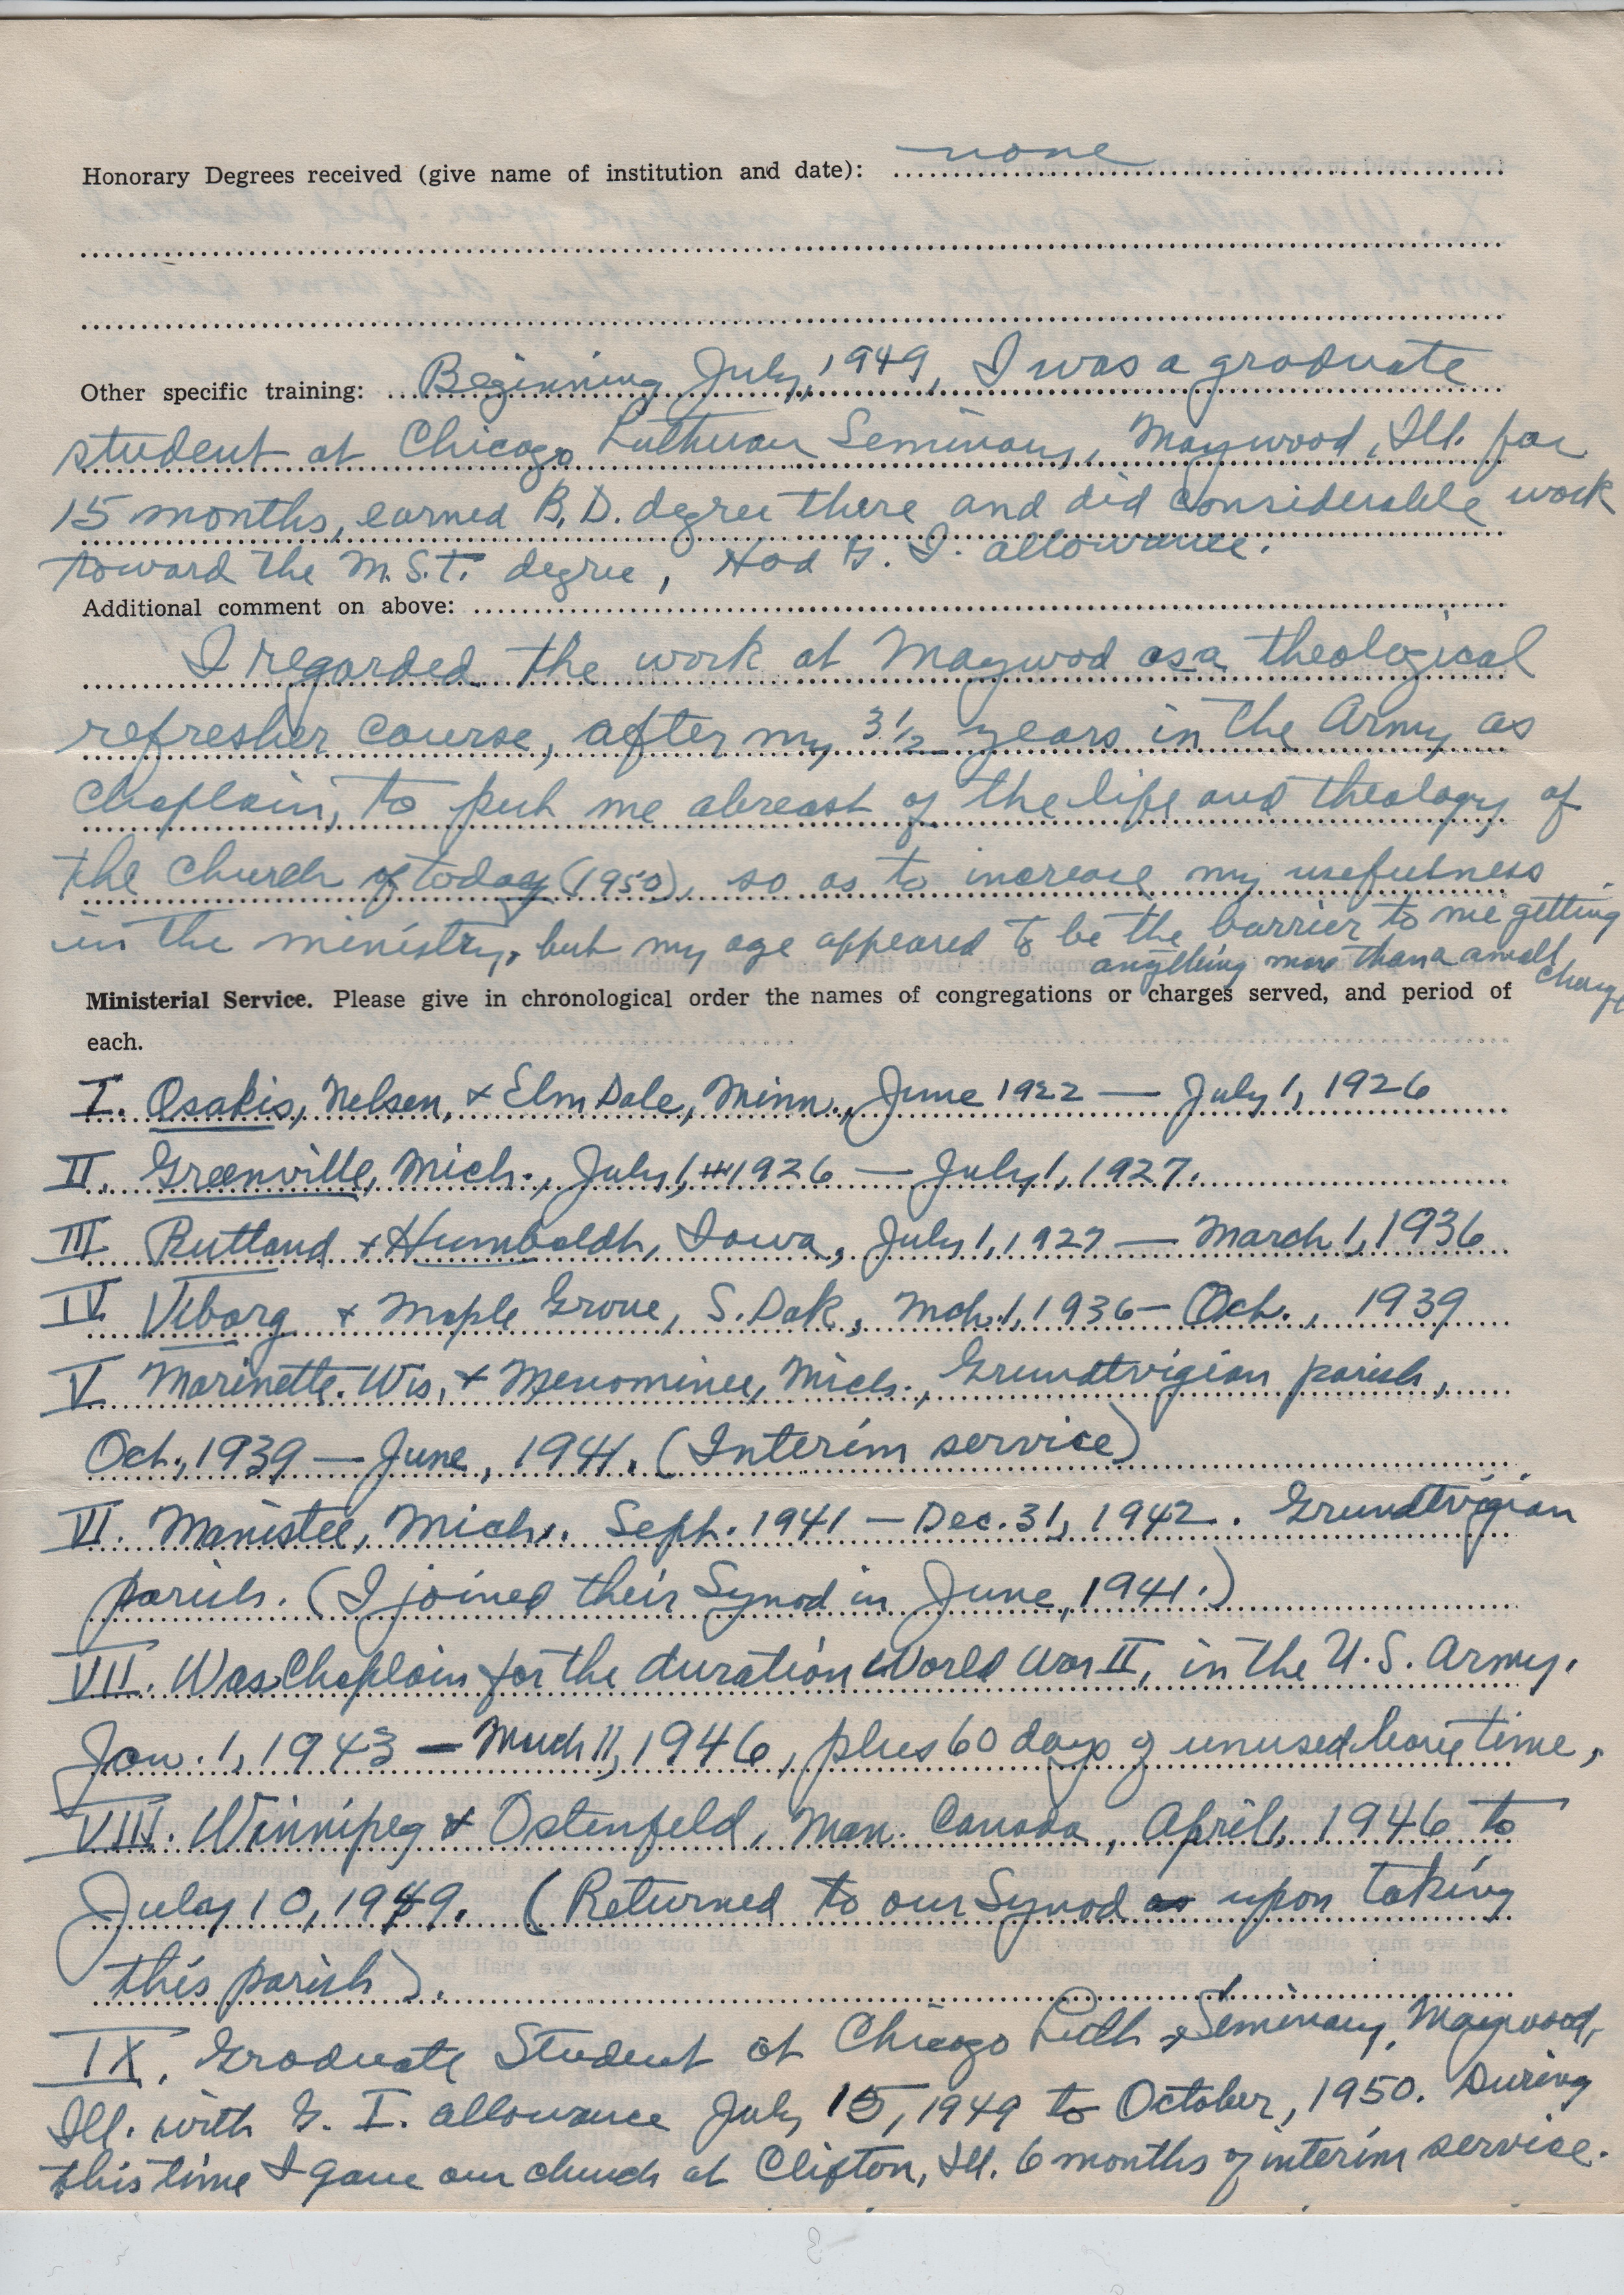 Honorary Degrees received (give name of institution and date): none
Other specific training: Beginning July, 1949, I was a graduate
student at Chicago Lutheran Seminary, Maywood, Ill. for
15 months, earned B.D. degree there and did considerable work
toward the M.S.T. degree, Had G. I. allowance.
Additional comment on above:
I regarded the work at Maywod as a theological
refresher course, after my 3 1/2 years in the Army as
Chaplain, to put me abreast of the life and theology of
the church of today (1950), so as to increase my usefulness
in the ministry, but my age appeared to be the barrier to me getting
anything more than a small charge
Ministerial Service. Please give in chronological order the names of congregations or charges served, and period of
each.
I. Osakis, Nelsen, & Elm Dale, Minn., June 1922 — July 1, 1926
II. Greenville, Mich., July 1, 1926 — July 1, 1927.
III Rutland & Humboldt, Iowa, July 1, 1927 — March 1, 1936
IV Viborg & Maple Grove, S. Dak, Mch. 1, 1936 — Oct., 1939
V Marinette, Wis, & Menominee, Mich., Grundtvigian parish,
Oct., 1939 — June, 1941. (Interim service)
VI. Manistee, Mich., Sept. 1941 — Dec. 31, 1942. Grundtvigian
parish. (I joined their Synod in June, 1941.)
VII. Was Chaplain for the duration World War II, in the U.S. Army.
Jan. 1, 1943 — March 11, 1946, plus 60 days of unused leave time,
VIII. Winnipeg & Ostenfeld, Man. Canada, April, 1946 to
July 10, 1949. (Returned to our Synod as upon taking
this parish).
IX. Graduate Student at Chicago Luth. Seminary, Maywood,
Ill. with G. I. allowance July 15, 1949 to October, 1950. During
this time I gave our church at Clifton, Ill. 6 months of interim service.
3